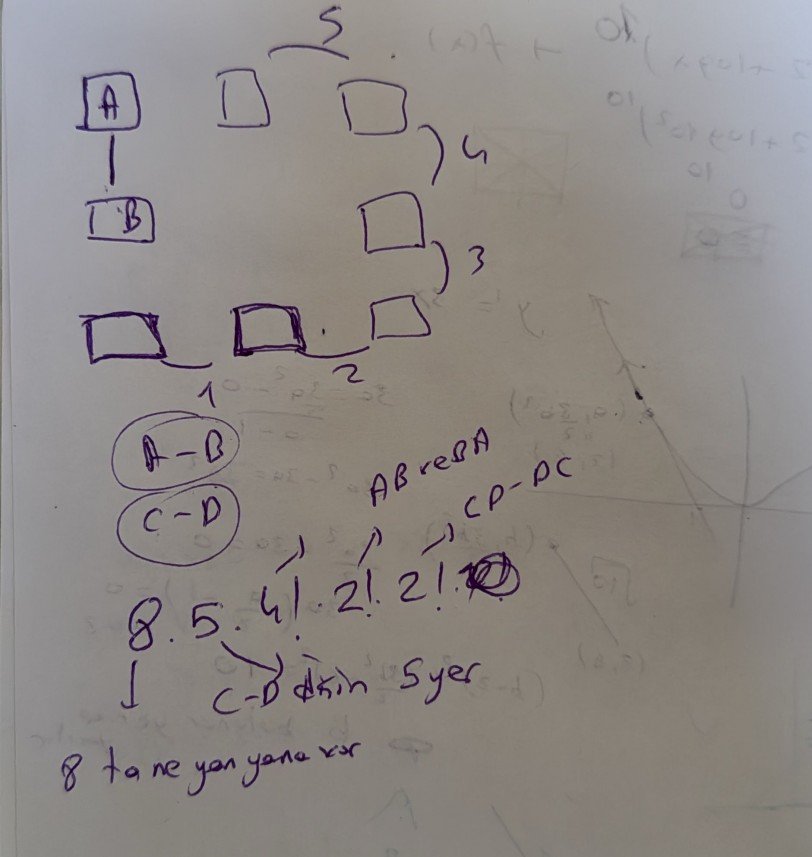 5
A
4
B
3
1 2
A-B
C-D
AB ve BA
CD-DC
8.5.4!.2!.2!.
C-D için 5 yer
8 tane yan yana var